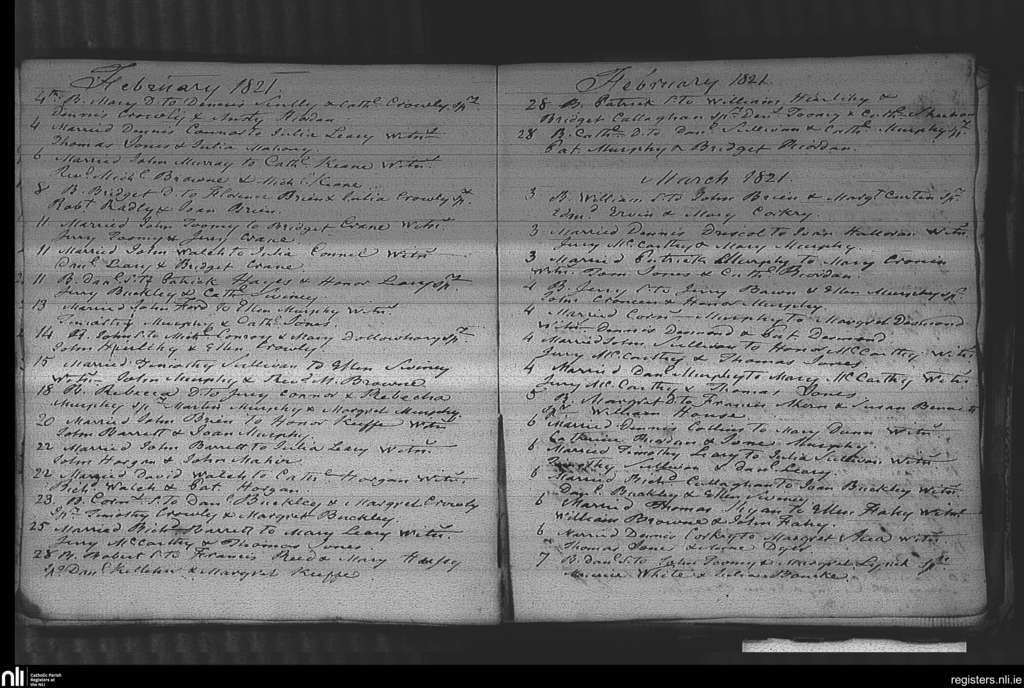 February 1821.
4th B. Mary D. to Dennis & Cathe Crowly Sprs
Dennis Crowly &
4 Married Dennis Connor to Julia Leary Witns
Thomas Jones & Julia Mahony
6 Married John Murray to Cathe Keane Witns
Revd Michl Browne & Michl Keane
8 B. Bridget D. to Florence Brien & Julia Crowly Sprs
Robt & Joan Brien.
11 Married John Toomey to Bridget Crane Witns
Jerry Toomey & Jerry Crane
11 Married John Walsh to Julia Connel Witns
Danl Leary & Bridget Crane
11 B. Danl S. to Patrick Hayes & Honor Leary Sprs
Jerry Buckley & Cathe Swiney.
13 Married John Ford to Ellen Murphy Witns
Timothy Murphy & Cathe Jones.
14 B. John S. to Conroy & Mary Sprs
John & Ellen Crowly.
15 Married Timothy Sullivan to Ellen Swiney
Witns John Murphy & Revd M. Browne
18 B. Rebecca D. to Jerry Connor & Rebecha
Murphy Sprs Martin Murphy & Margret Murphy.
20 Married John Brien to Honor Keeffe Witns
John Barrett & Joan Murphy
22 Married John Barrett to Julia Leary Witns
John Horgan & John
22 Married David Walsh to Cathe Horgan Witns
Richd Walsh & Pat Horgan
23 B. Corns S. to Danl Buckley & Margret Crowly
Sprs Timothy Crowly & Margret Buckley.
25 Married Richd Barrett to Mary Leary Witns
Jerry McCarthy & Thomas Jones
28 B. Robert S. to Francis & Mary
Sprs Danl Kelleher & Margret Keeffe
February 1821.
28 B. Patrick S. to William &
Bridget Callaghan Sprs Denl Toomey & Cathe
28 B. Cathe D. to Danl Sullivan & Cathe Murphy Sprs
Pat Murphy & Bridget Riordan.
March 1821.
3 B. William S. to John Brien & Margt Curtin Sprs
Edmd & Mary Corkry.
3 Married Dennis Driscol to Joan Witns
Jerry McCarthy & Mary Murphy.
3 Married Patrick Murphy to Mary Cronin
Witns Thom Jones & Cathe Riordan
4 B. Jerry S. to Jerry & Ellen Murphy Sprs
John Croneen & Honor Murphy
4 Married Corns Murphy to Margret Desmond
Witns Dennis Desmond & Pat Desmond
4 Married John Sullivan to Honor McCarthy Witns
Jerry McCarthy & Thomas Jones
4 Married Danl Murphy to Mary McCarthy Witns
Jerry McCarthy & Thomas Jones
5 B. Margret D. to Francis & Susan
Sprs William House
6 Married Dennis Collins to Mary Dunn Witns
Catherine Riordan & Jane Murphy
6 Married Timothy Leary to Julia Sullivan Witns
Timothy Sullivan & Danl Leary
6 Married Richd Callaghan to Joan Buckley Witns
Danl Buckley & Ellen Swiney
6 Married Thomas Ryan to Ellen Fahey Witns
William Browne & John Fahey.
6 Married Dennis to Margret Shea Witns
Thomas Jone & Dyer
7 B. Danl S. to John Toomey & Margret Lynch Sprs
Maurice White & Julian Bourke.
nli
Catholic Parish
Registers at
the NLI
registers.nli.ie